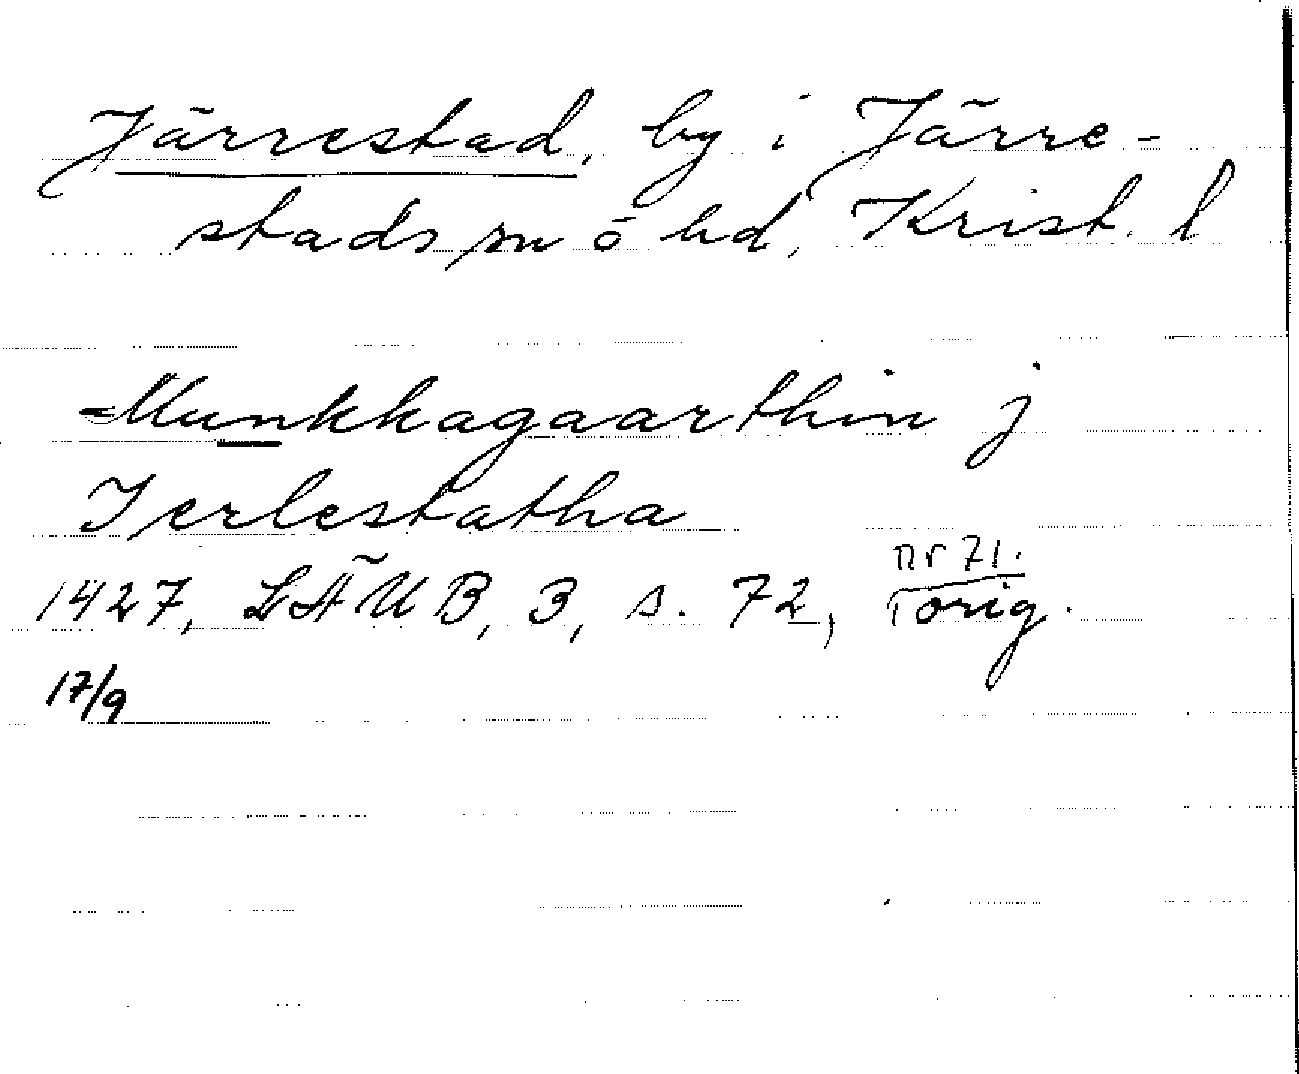 Järrestad, by i Järre-
stads sn o hd, Krist. l
Munkkagaarthin j
Jerlestatha
nr 71.
1427, LÄUB, 3, s. 72, orig.
17/9